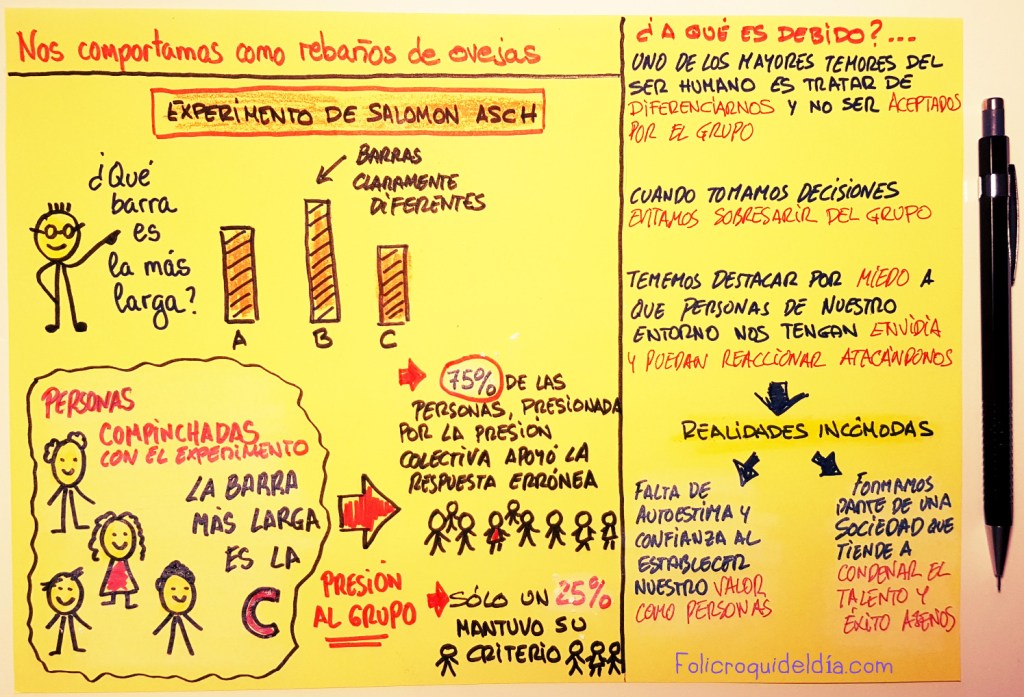 Nos comportamos como rebaños de ovejas
EXPERIMENTO DE SALOMON ASCH
BARRAS
CLARAMENTE
DIFERENTES
¿Qué
barra
es
la más
larga?
A
B
C
PERSONAS
COMPINCHADAS
CON EL EXPERIMENTO
LA BARRA
MÁS LARGA
ES LA
C
PRESIÓN
AL GRUPO
75% DE LAS
PERSONAS, PRESIONADA
POR LA PRESIÓN
COLECTIVA APOYÓ LA
RESPUESTA ERRÓNEA
SÓLO UN 25%
MANTUVO SU
CRITERIO
¿A QUÉ ES DEBIDO?...
UNO DE LOS MAYORES TEMORES DEL
SER HUMANO ES TRATAR DE
DIFERENCIARNOS Y NO SER ACEPTADOS
POR EL GRUPO
CUANDO TOMAMOS DECISIONES
EVITAMOS SOBRESARIR DEL GRUPO
TEMEMOS DESTACAR POR MIEDO A
QUE PERSONAS DE NUESTRO
ENTORNO NOS TENGAN ENVIDIA
Y PUEDAN REACCIONAR ATACÁNDONOS
REALIDADES INCÓMODAS
FALTA DE
AUTOESTIMA Y
CONFIANZA AL
ESTABLECER
NUESTRO VALOR
COMO PERSONAS
FORMAMOS
PARTE DE UNA
SOCIEDAD QUE
TIENDE A
CONDENAR EL
TALENTO Y
ÉXITO AJENOS
Folicroquideldía.com